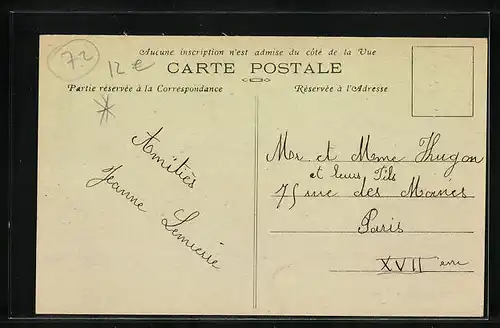 72
12 €
Aucune inscription n'est admise du côté de la Vue
CARTE POSTALE
Partie réservée à la Correspondance
Réservée à l'Adresse
Amitiés
Jeanne Lemierre
Mr et Meme Hugon
et leurs Fils
75 rue des Moines
Paris
XVII eme